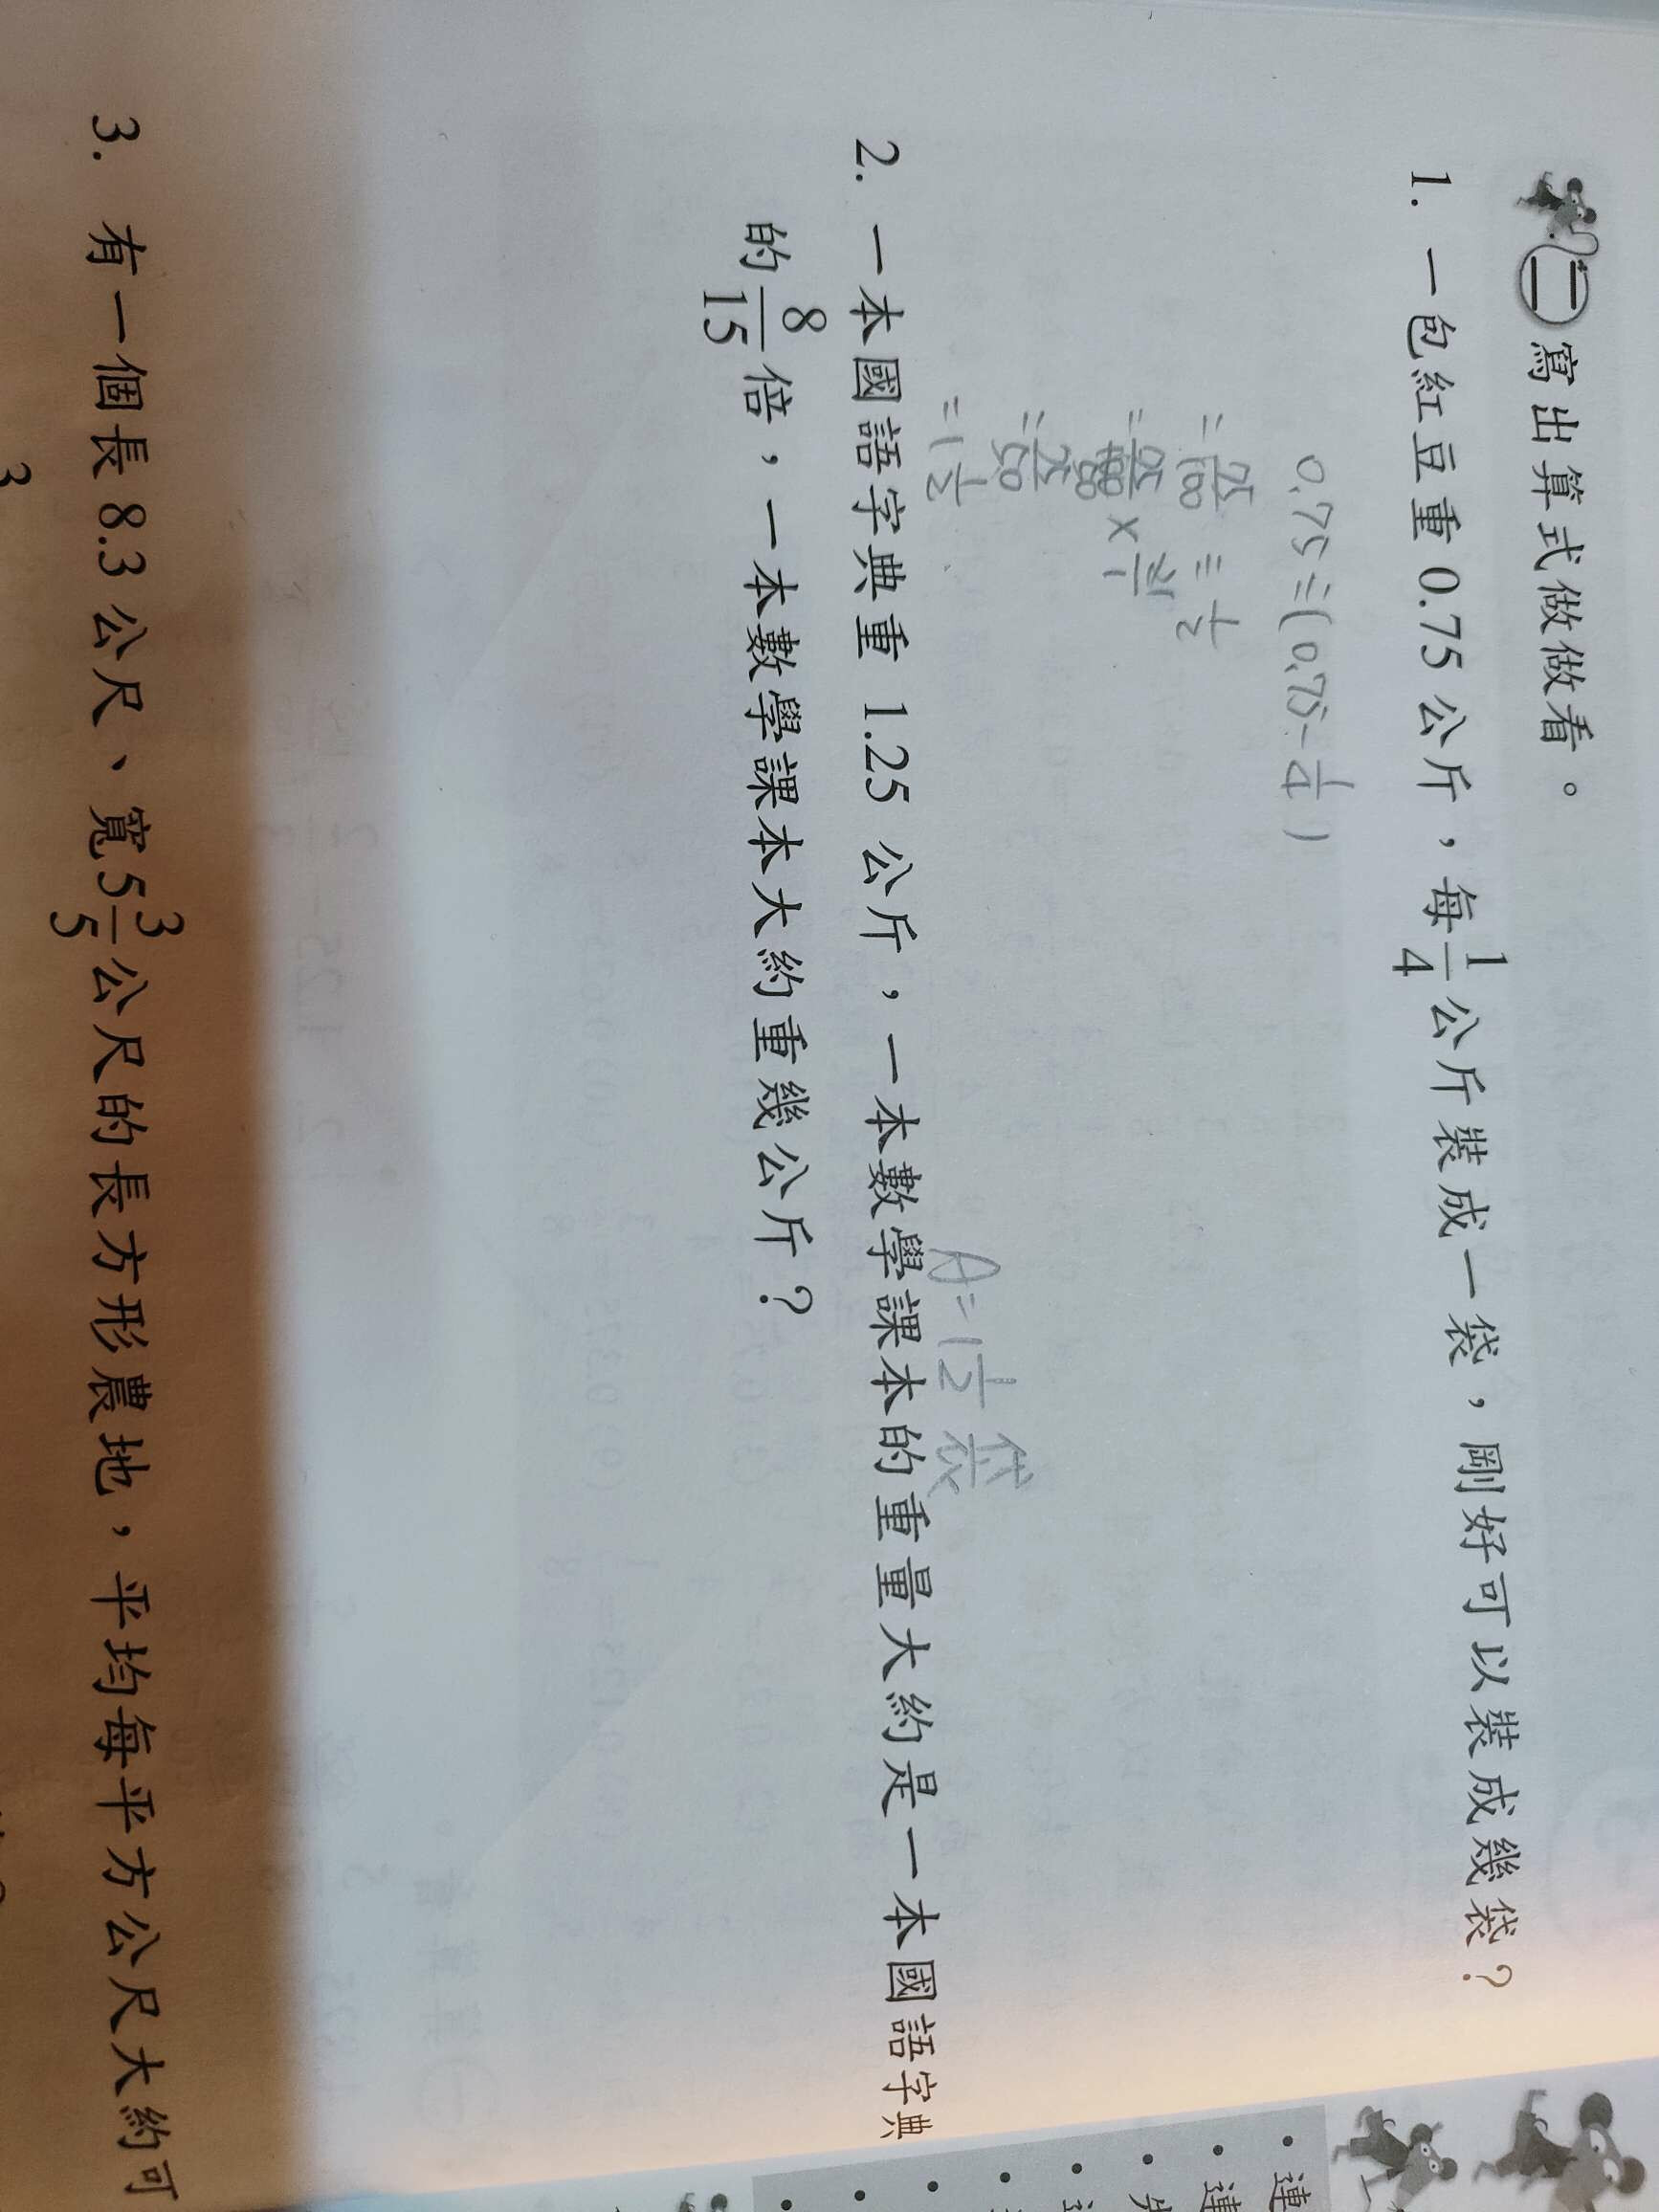 ㊁寫出算式做做看。
1. 一包紅豆重0.75公斤，每1/4公斤裝成一袋，剛好可以裝成幾袋？
0.75÷(0.75-1/4)
=75/100÷1/2
×2/1
=75/50
=1 1/2
A=1 1/2 袋
2. 一本國語字典重 1.25 公斤，一本數學課本的重量大約是一本國語字典
的8/15倍，一本數學課本大約重幾公斤？
3. 有一個長8.3公尺、寬5 3/5公尺的長方形農地，平均每平方公尺大約可
3
連
連